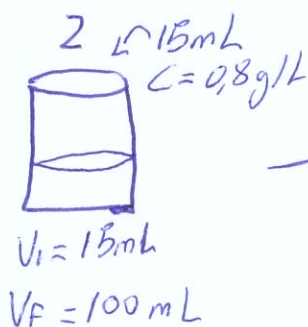 2 15mL
C=0,8g/L
V1=15mL
VF=100mL